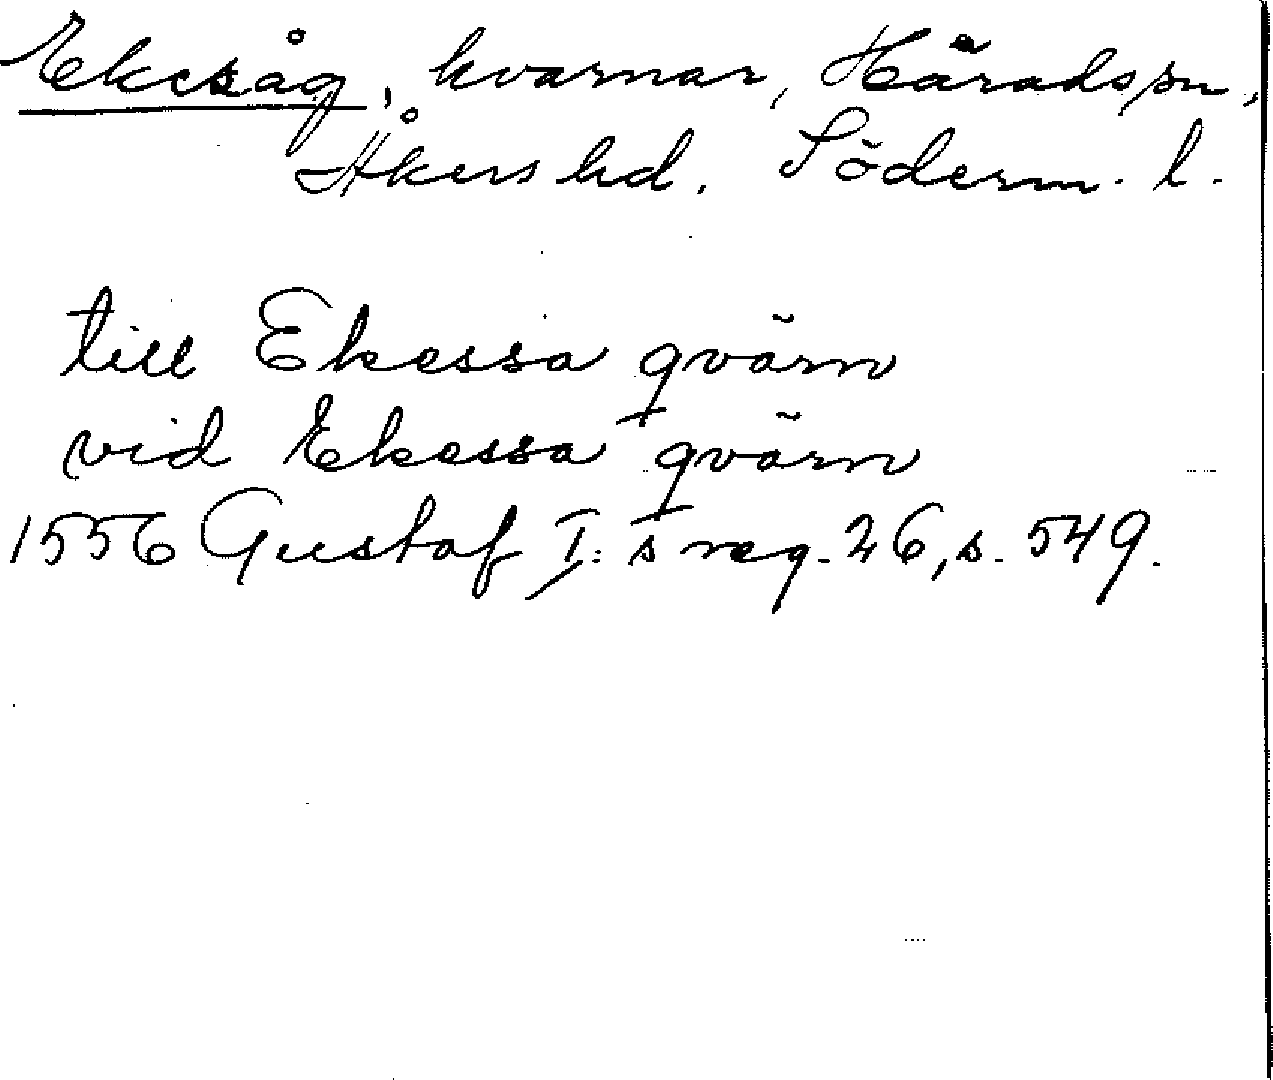 Ekesåg, kvarnar, Härads sn,
Åkers hd. Söderm. l.
till Ekessa qvärn
vid Ekessa qvärn
1556 Gustaf I:s reg. 26, s. 549.